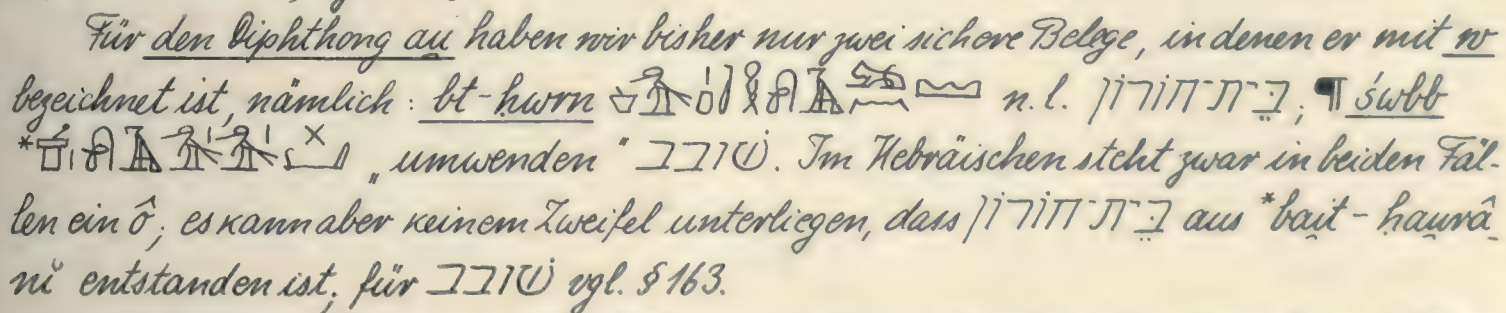 Für den Diphthong au̯ haben wir bisher nur zwei sichere Belege, in denen er mit w
bezeichnet ist, nämlich: bt-ḥwrn n. l. בֵּית־חוֹרוֹן; ¶ śwbb
„umwenden“ שׁוֹבב. Im Hebräischen steht zwar in beiden Fäl-
len ein ô; es kann aber keinem Zweifel unterliegen, dass בֵּית־חוֹרוֹן aus *bai̯t-ḥau̯râ-
nĭ entstanden ist; für שׁוֹבב vgl. § 163.